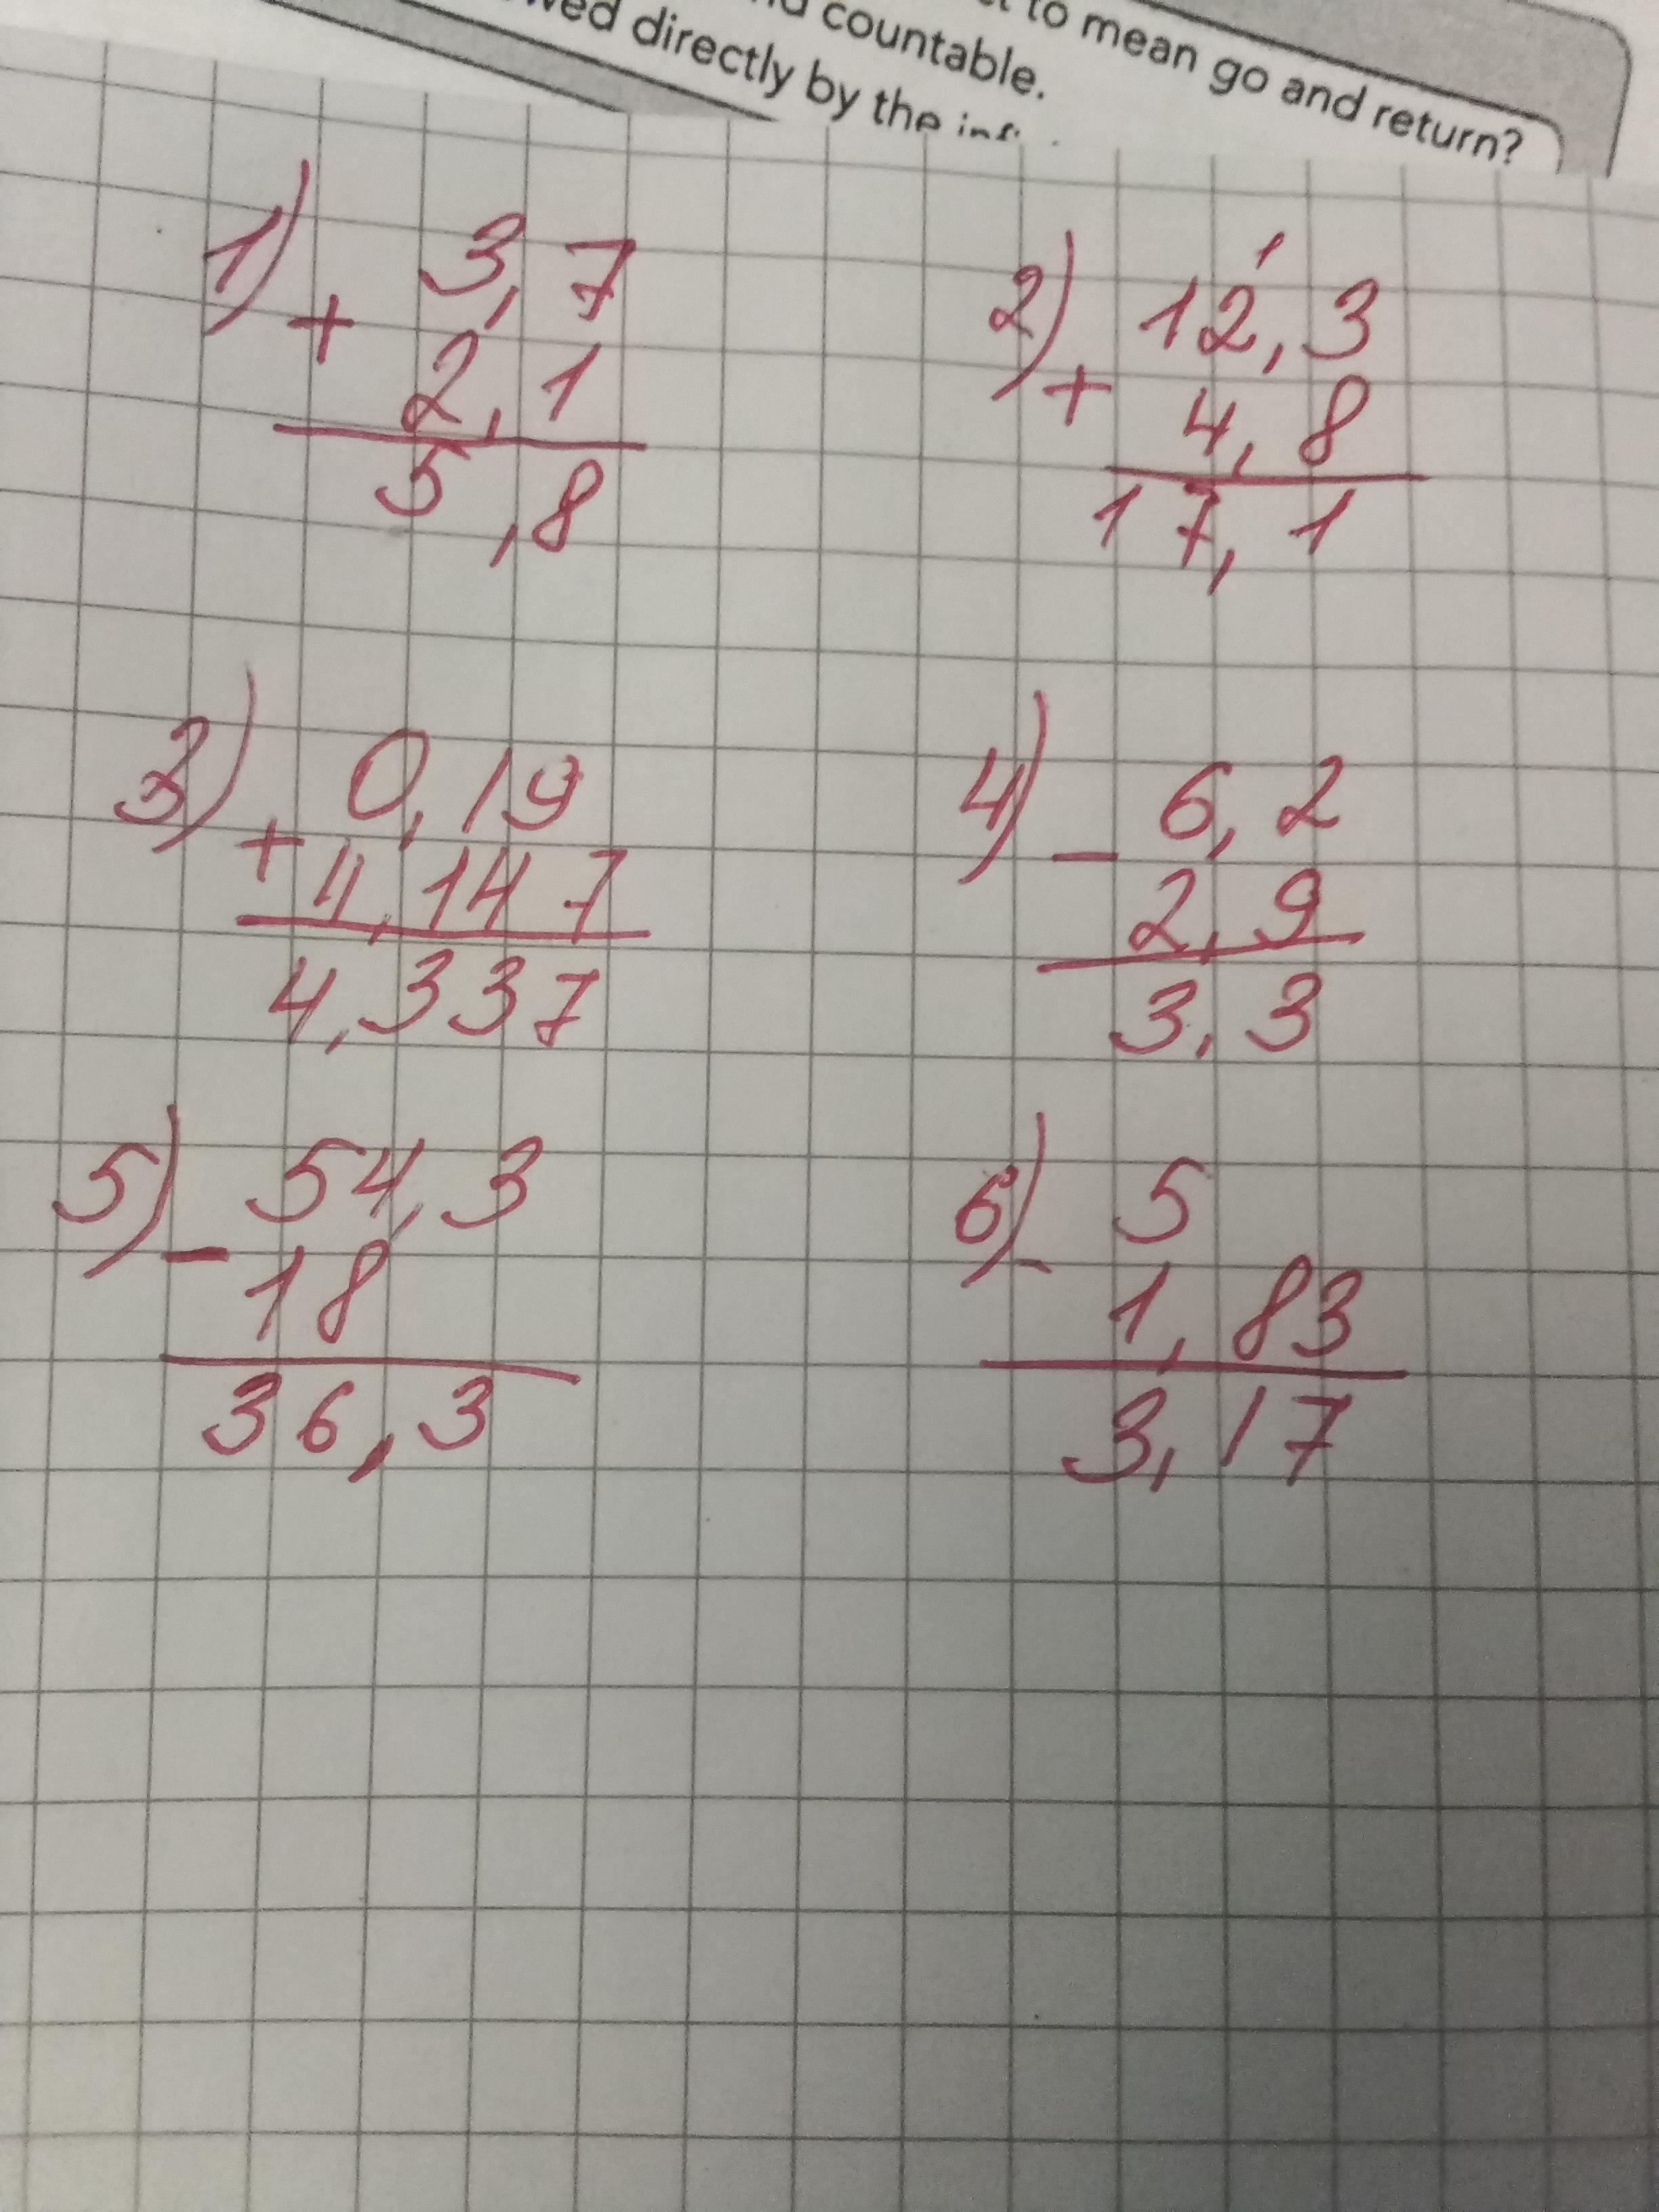 to mean go and return?
countable.
directly by the
1) 3,7
+
2,1
5,8
2) 1
12,3
+ 4,8
17,1
3) 0,19
+ 4,147
4,337
4) 6,2
-
2,9
3,3
5) 54,3
-
18
36,3
6) 5
-
1,83
3,17